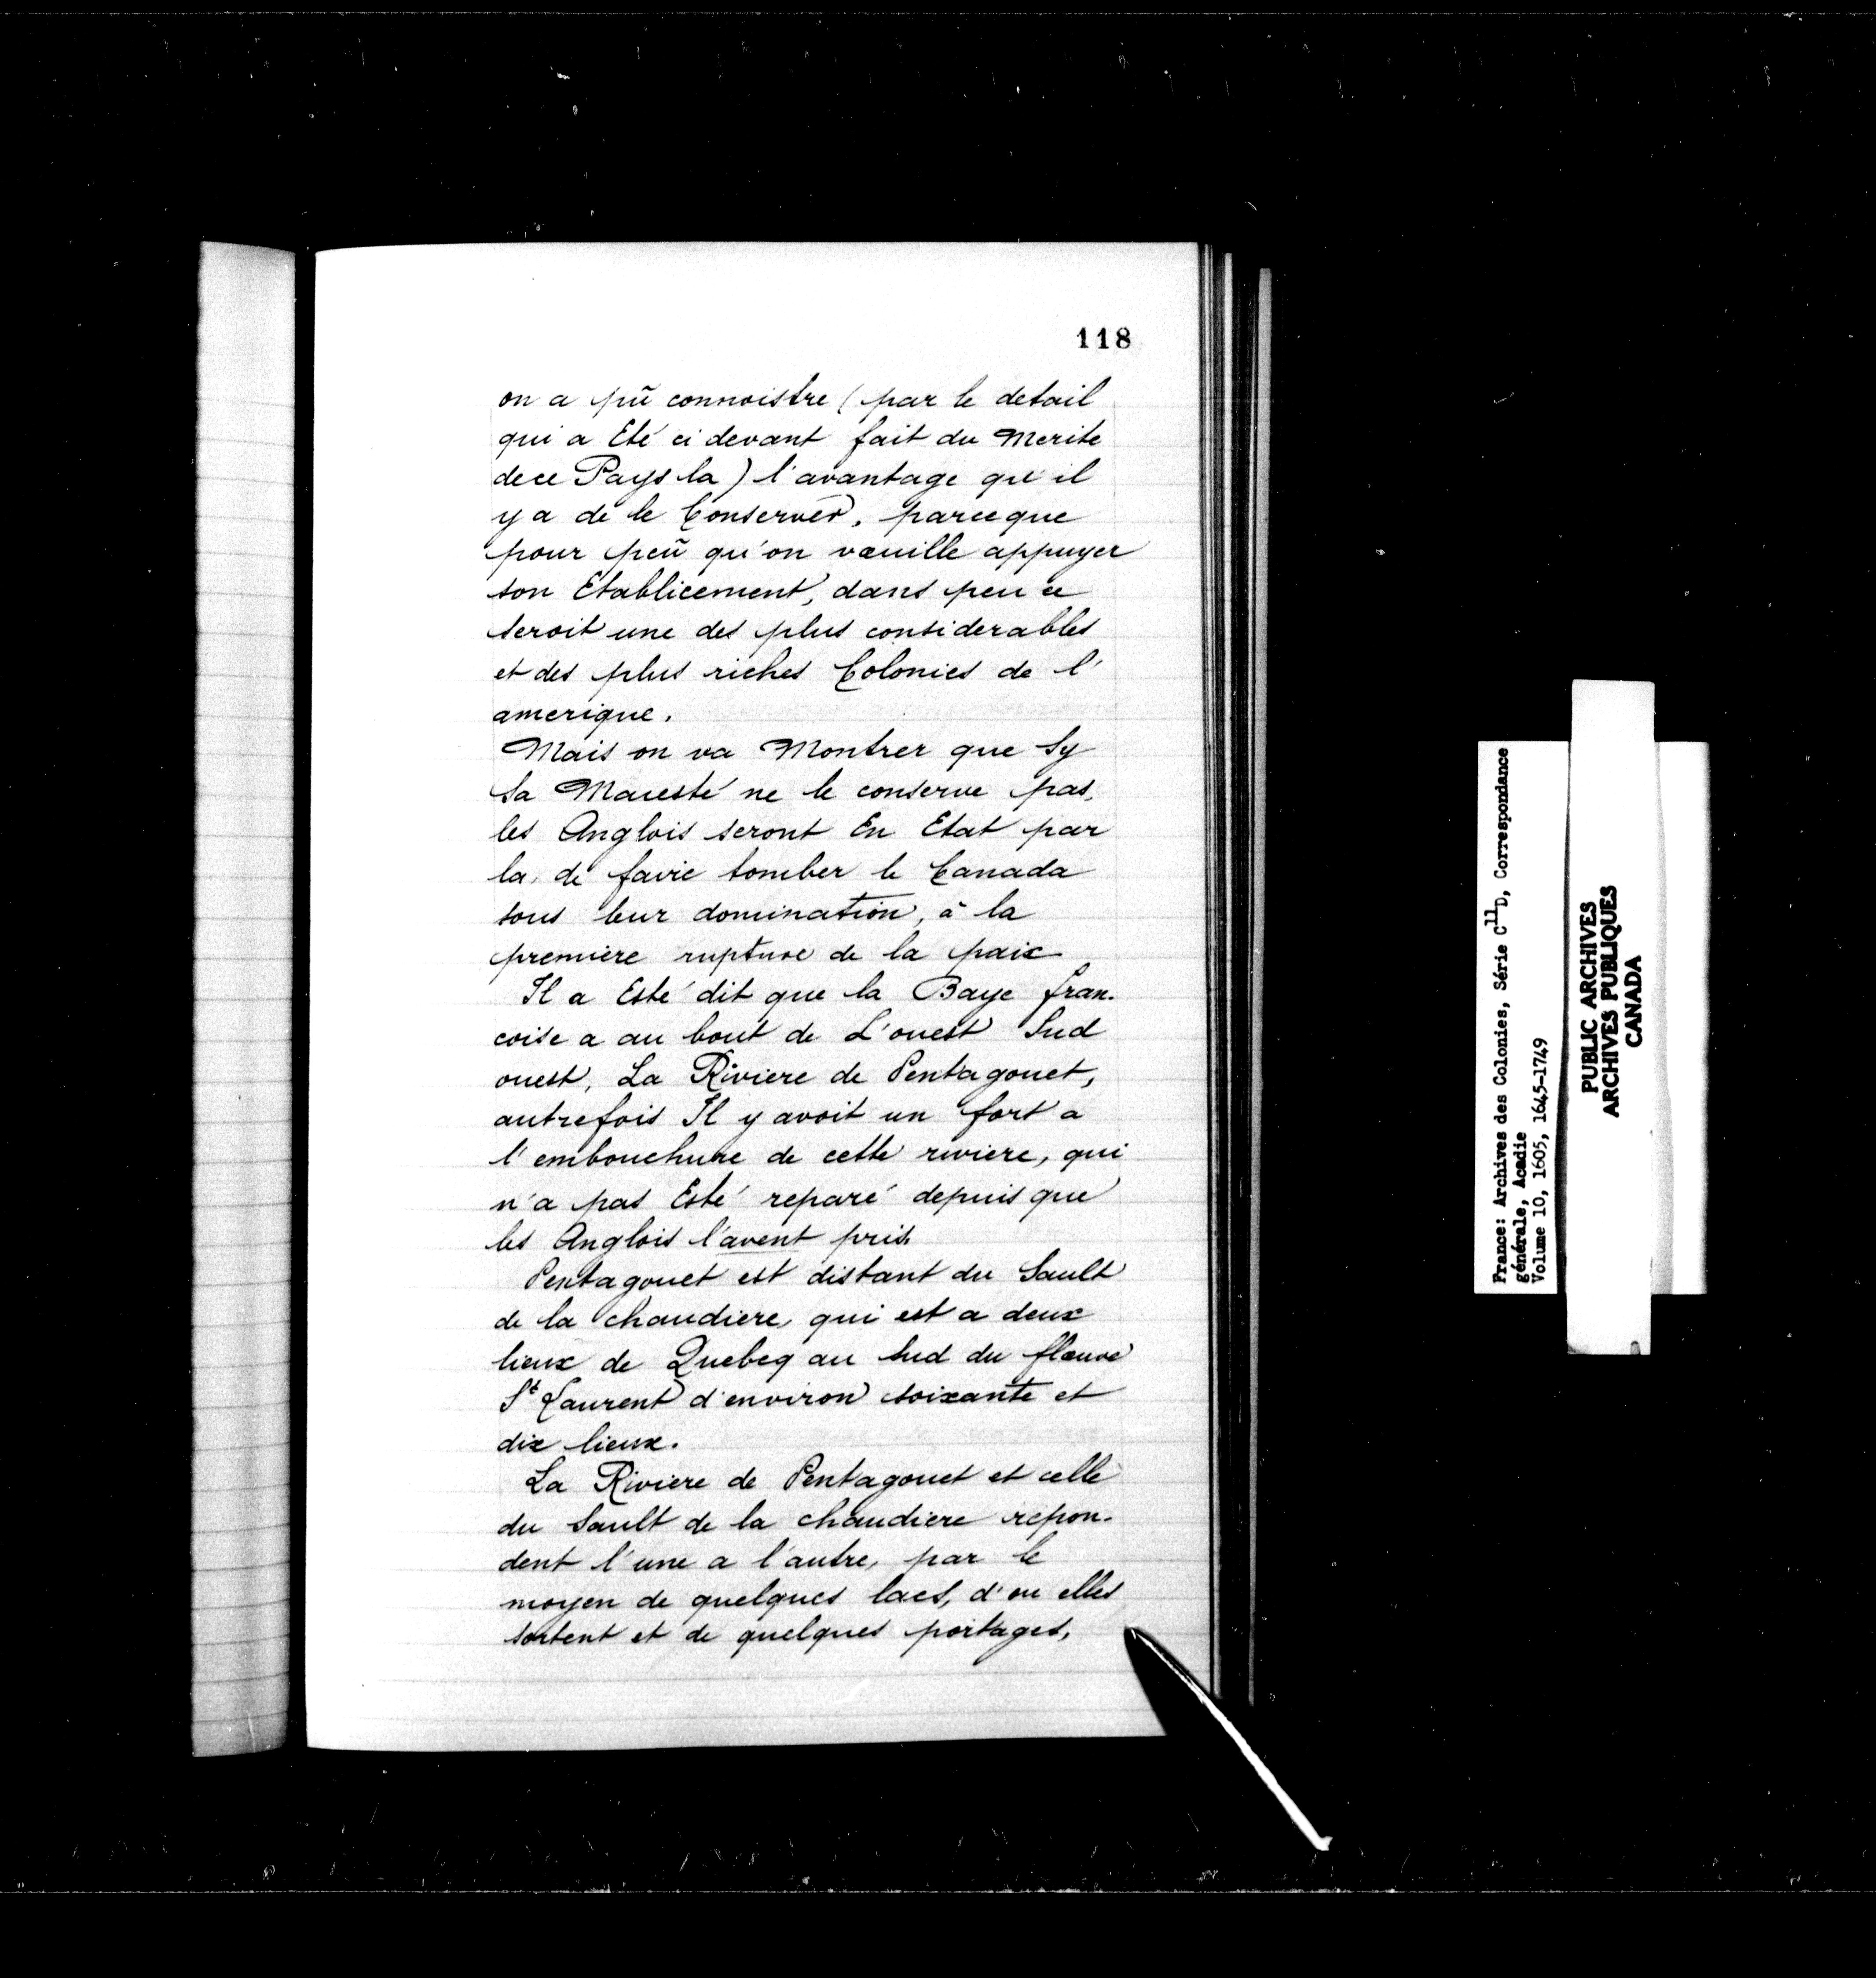 118
on a pũ connoistre (par le detail
qui a Eté ci devant fait du Merite
de ce Pays la) l'avantage qu'il
y a de le Conserver, parceque
pour peũ qu'on vœuille appuyer
son Etablicement, dans peu ce
seroit une des plus considerables
et des plus riches Colonies de l'
amerique.
Mais on va Montrer que Sy
Sa Maiesté ne le conserve pas,
les Anglois seront En Etat par
la, de faire tomber le Canada
sous leur domination, à la
première rupture de la paix
Il a Esté dit que la Baye fran-
coise a au bout de L'ouest Sud
ouest, La Riviere de Pentagouet,
autrefois Il y avoit un fort a
l'embouchure de cette riviere, qui
n'a pas Esté reparé depuis que
les Anglois l'avent pris.
Pentagouet est distant du Sault
de la chaudiere, qui est a deux
lieux de Quebeq au Sud du flœuve
St Laurent d'environ soixante et
dix lieux.
La Riviere de Pentagouet et celle
du Sault de la chaudiere repon-
dent l'une a l'autre, par le
moyen de quelques lacs, d'ou elles
sortent et de quelques portages,
France: Archives des Colonies, Série C11D, Correspondance
générale, Acadie
Volume 10, 1605, 1645-1749
PUBLIC ARCHIVES
ARCHIVES PUBLIQUES
CANADA